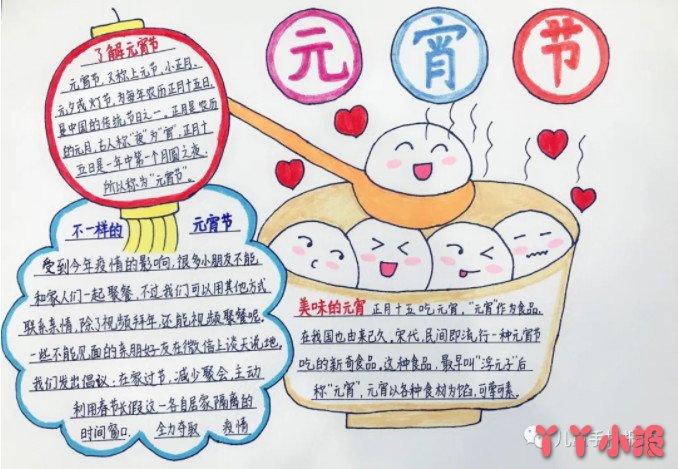 元宵节
了解元宵节
元宵节，又称上元节，小正月，
元夕或灯节，为每年农历正月十五日，
是中国的传统节日之一。正月是农历
的元月，古人称"夜"为"宵"，正月十
五日是一年中第一个月圆之夜，
所以称为"元宵节"。
不一样的 元宵节
受到今年疫情的影响，很多小朋友不能
和家人们一起聚餐，不过我们可以用其他方式
联系亲情，除了视频拜年还能视频聚餐呢。
一些不能见面的亲朋好友在微信上谈天说地。
我们发出倡议：在家过节，减少聚会，主动
利用春节长假这一各自居家隔离的
时间窗口， 全力夺取 疫情
美味的元宵 正月十五吃元宵，"元宵"作为食品，
在我国也由来已久。宋代，民间即流行一种元宵节
吃的新奇食品。这种食品，最早叫"浮元子"后
称"元宵"，元宵以各种食材为馅，可荤可素。
丫丫小报